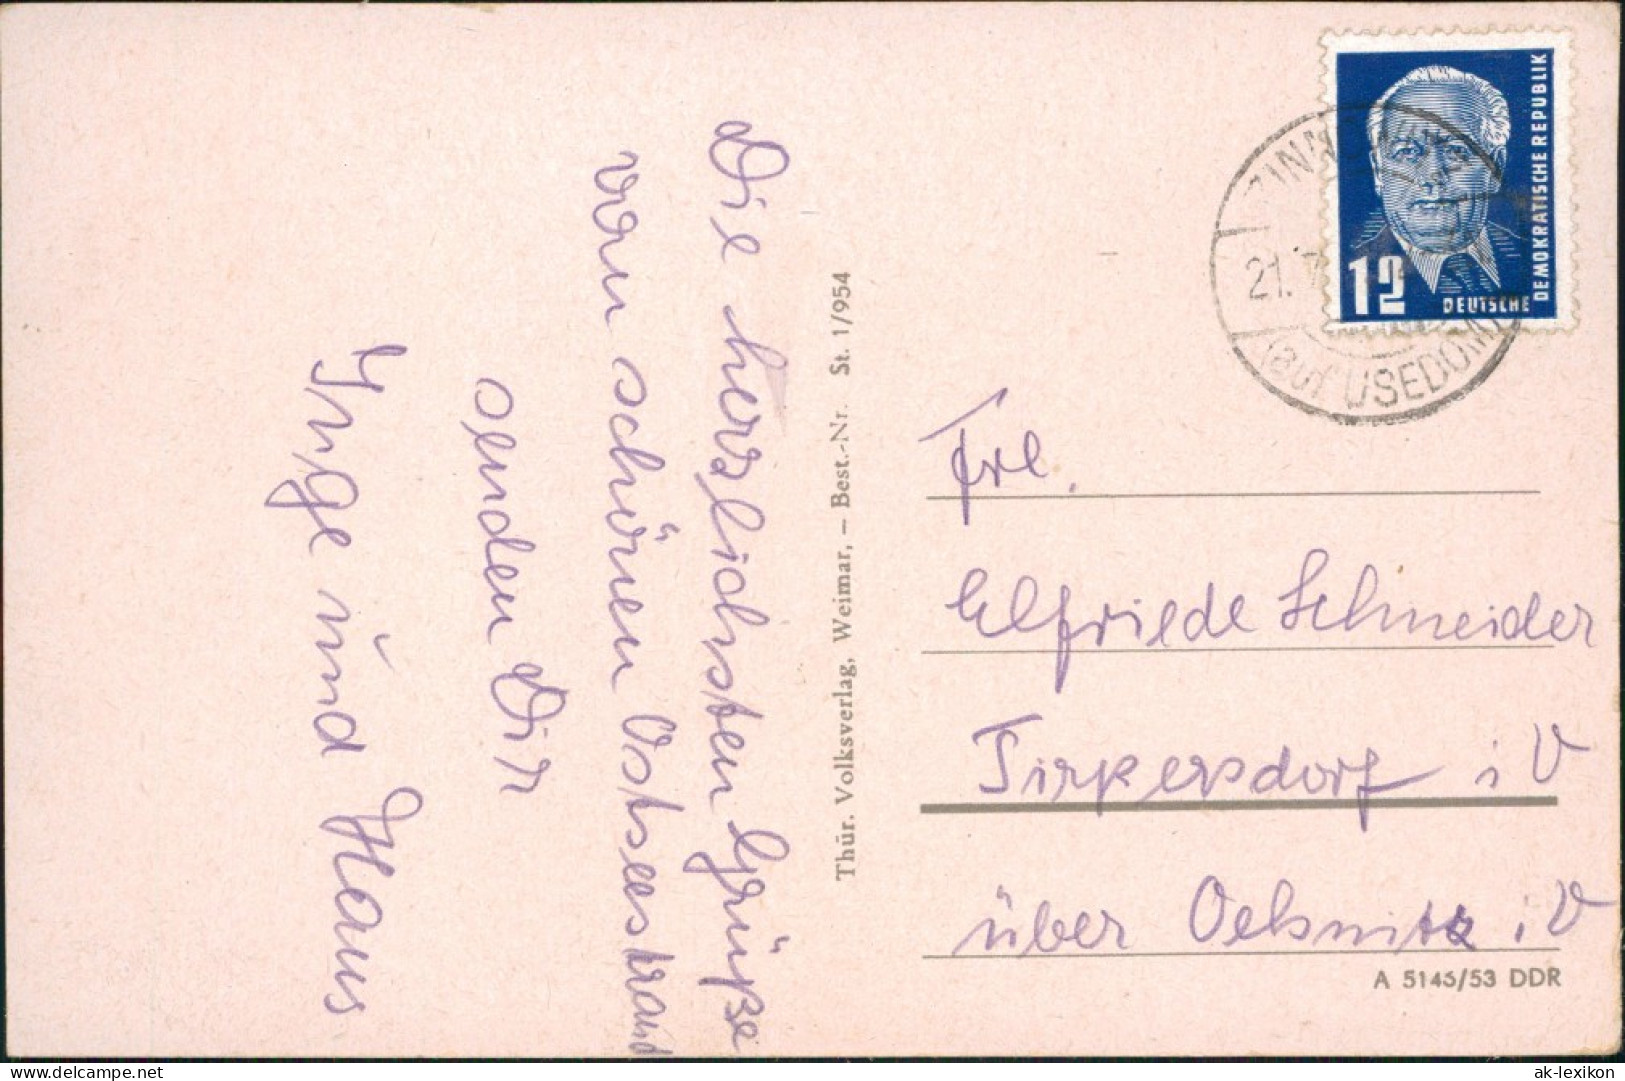 Die herzlichsten Grüße
von schönen Ostseestrand
senden Dir
Inge und Klaus
Thür. Volksverlag, Weimar, – Best.-Nr. St. 1/954
12
DEUTSCHE
DEMOKRATISCHE REPUBLIK
21. 7.
(auf USEDOM)
Frl.
Elfriede Schneider
Tirpersdorf i V
über Oelsnitz i V
A 5145/53 DDR
delcampe.net
ak-lexikon